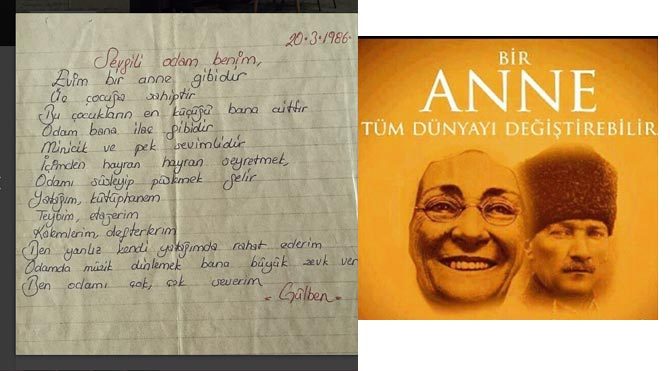 20.3.1986.
Sevgili odam benim,
Evim bir anne gibidir
Üç çocuğa sahiptir
Bu çocukların en küçüğü bana aittir
Odam bana ilaç gibidir
Minicik ve pek sevimlidir
İçimden hayran hayran seyretmek,
Odamı süsleyip püskmek gelir
Yatağım, kütüphanem
Teybim, etajerim
Kalemlerim, defterlerim
Ben yanlız kendi yatağımda rahat ederim
Odamda müzik dinlemek bana büyük zevk ver
Ben odamı çok, çok severim
- Gülben -
BİR
ANNE
TÜM DÜNYAYI DEĞİŞTİREBİLİR.